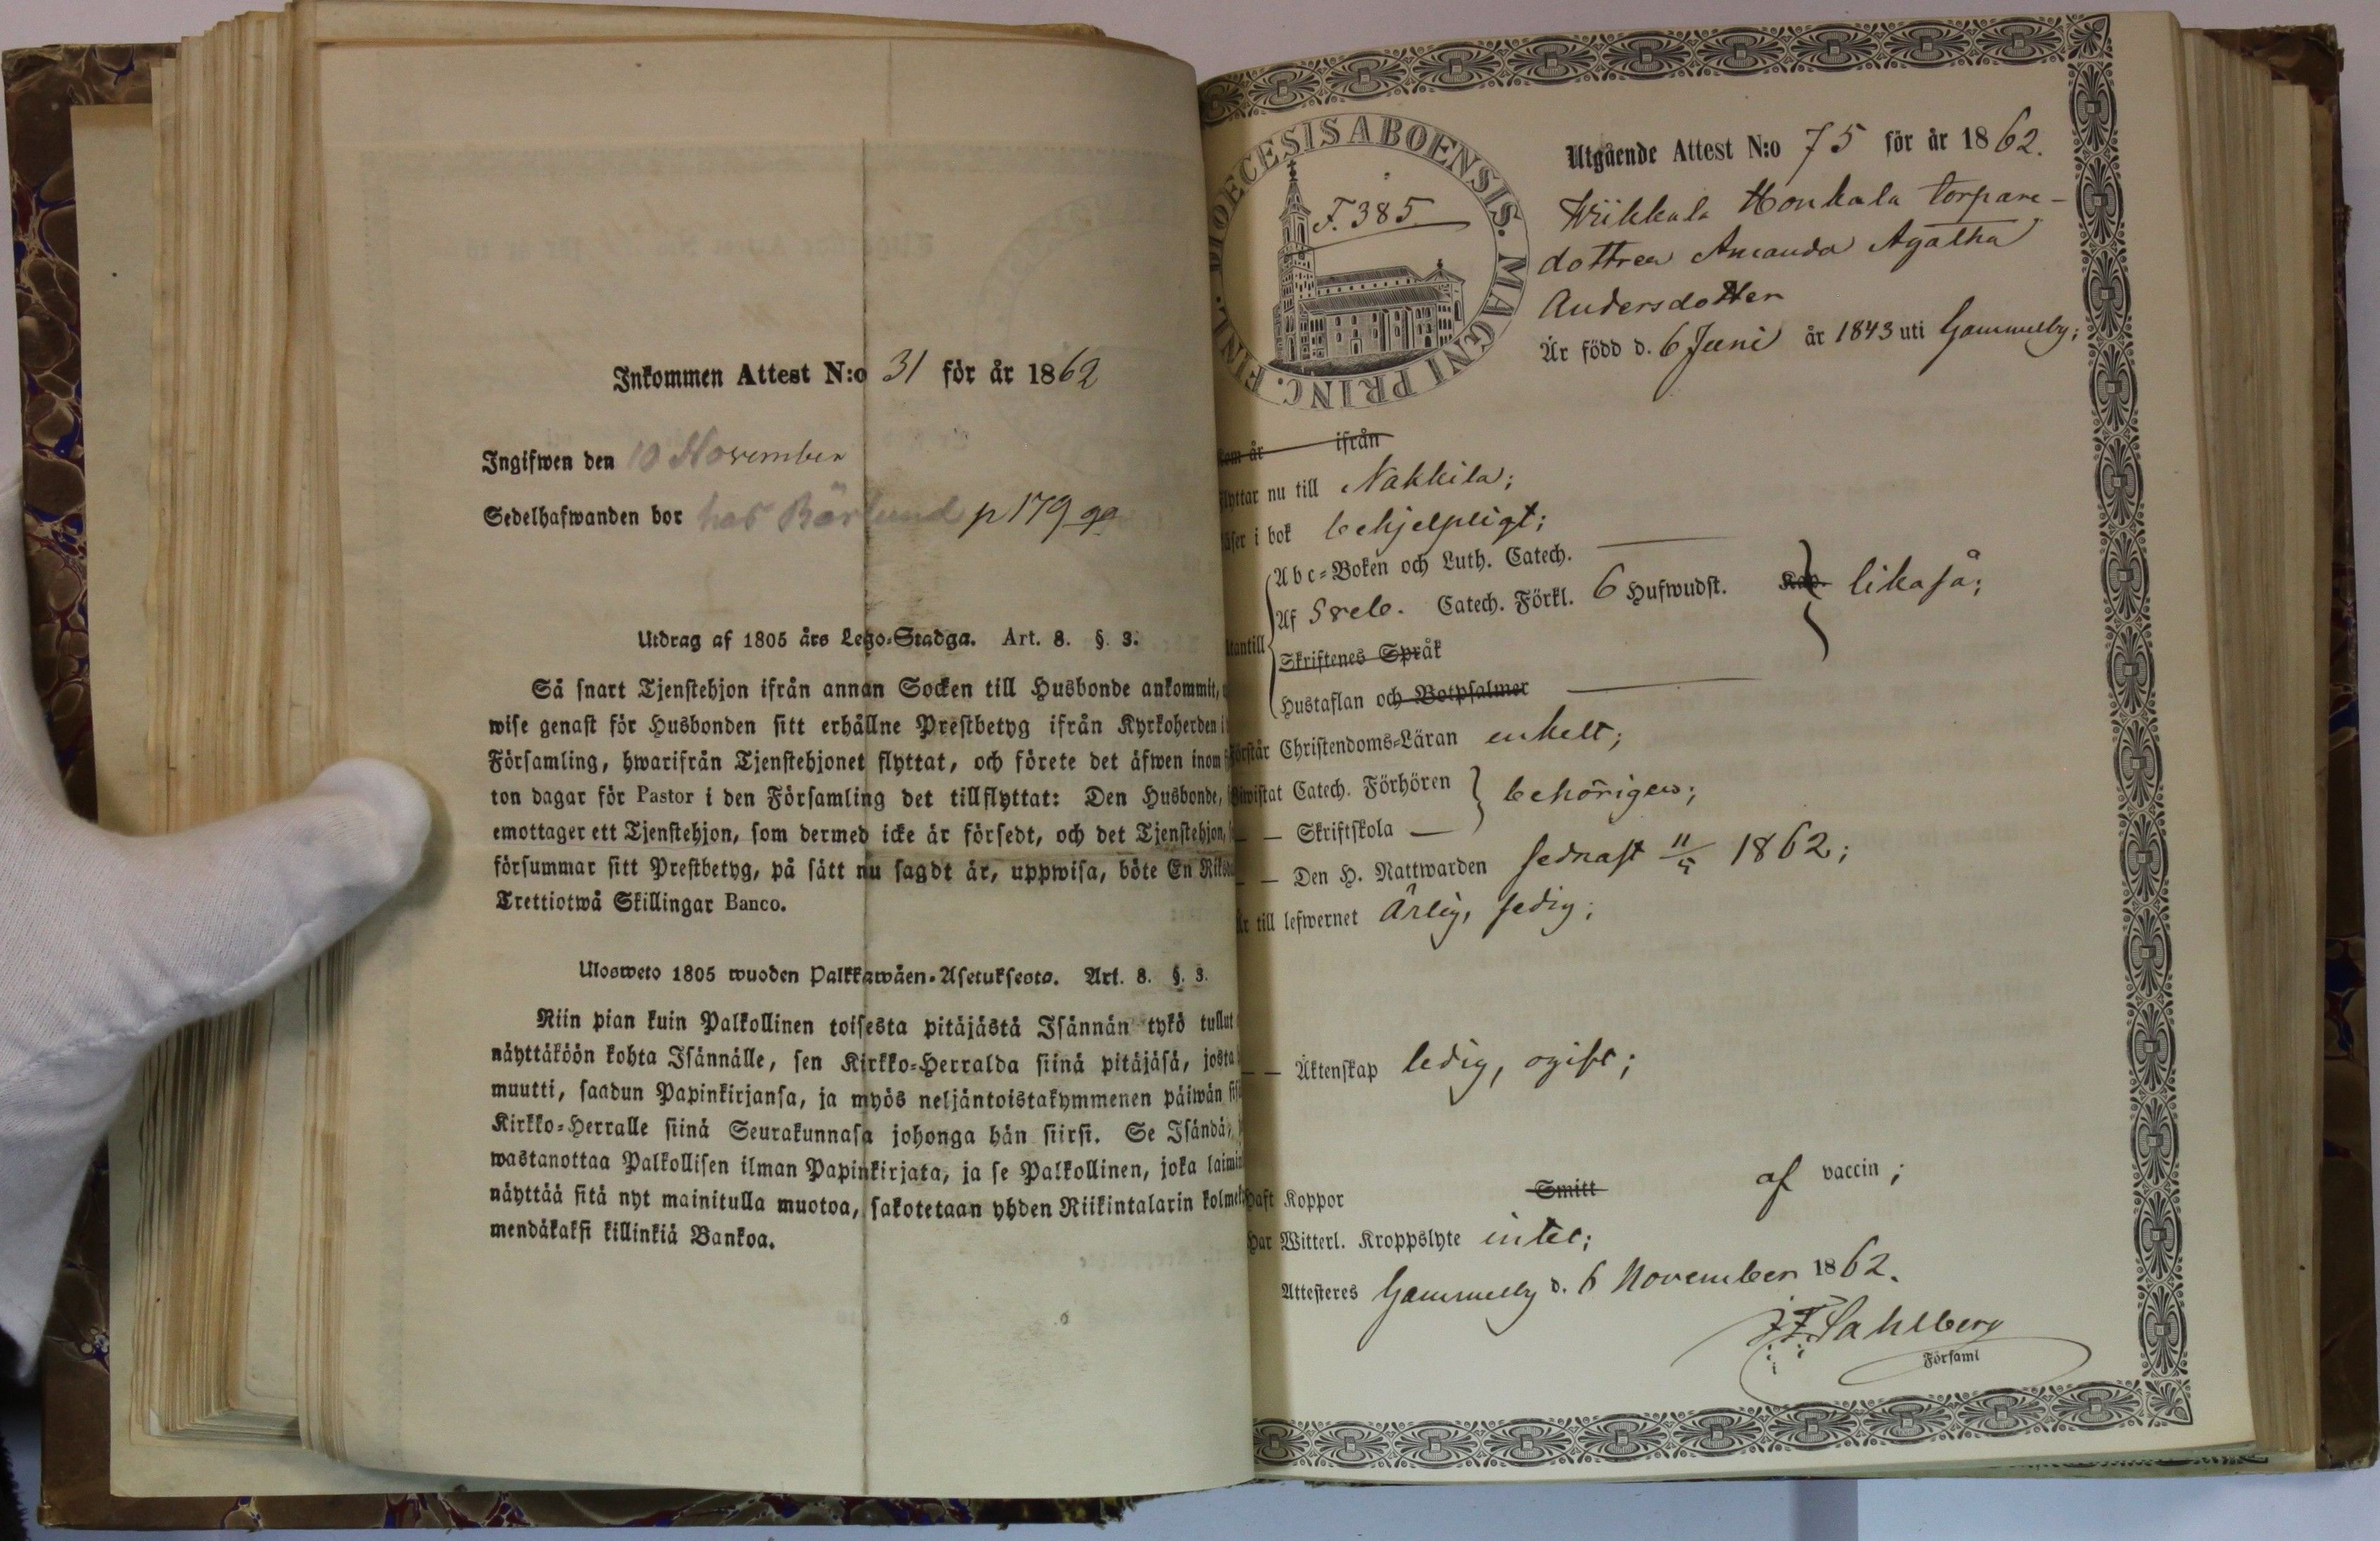 Inkommen Attest N:o 31 för år 1862
Ingifwen den 10 November
Sedelhafwanden bor hos Bärlund p 179
Utdrag af 1805 års Lego-Stadga. Art. 8. §. 3.
Så snart Tjenstehjon ifrån annan Socken till Husbonde ankommit,
wise genast för Husbonden sitt erhållne Prestbetyg ifrån Kyrkoherden i
Församling, hwarifrån Tjenstehjonet flyttat, och förete det äfwen inom
ton dagar för Pastor i den Församling det tillflyttat: Den Husbonde,
emottager ett Tjenstehjon, som dermed icke är försedt, och det Tjenstehjon,
försummar sitt Prestbetyg, på sätt nu sagdt är, uppwisa, böte En Riks
Trettiotwå Skillingar Banco.
Ulosweto 1805 wuoden Palkkawäen-Asetuksesta. Art. 8. §. 3.
Niin pian kuin Palkollinen toisesta pitäjästä Isännän tykö tullut
näyttäköön kohta Isännälle, sen Kirkko-Herralda siinä pitäjäsä, josta
muutti, saadun Papinkirjansa, ja myös neljäntoistakymmenen päiwän
Kirkko-Herralle siinä Seurakunnasa johonga hän siirsi. Se Isändä,
wastanottaa Palkollisen ilman Papinkirjata, ja se Palkollinen, joka laimin
näyttää sitä nyt mainitulla muotoa, sakotetaan yhden Riikintalarin kolme
mendäkaksi killinkiä Bankoa.
DIOECESIS ABOENSIS. MAGNI PRINC. FINL.
F. 385
Utgående Attest N:o 75 för år 1862.
Wiikkala Honkala torpare-
dottren Amanda Agatha
Andersdotter
Är född d. 6 Juni år 1843 uti Gammelby;
kom år ifrån
flyttar nu till Nakkila;
läser i bok behjelpligt;
Abc-Boken och Luth. Catech.
Af Sveb. Catech. Förkl. 6 Hufwudst. Kap. likaså;
Utantill
Skriftenes Språk
Hustaflan och Botpsalmer
Förstår Christendoms-Läran enkelt;
Biwistat Catech. Förhören behörigen;
— — Skriftskola —
— — Den H. Nattwarden sednast 11/5 1862;
Är till lefwernet ärlig, sedig;
— — Äktenskap ledig, ogift;
Haft Koppor Smitt af vaccin;
Har Witterl. Kroppslyte intet;
Attesteres Gammelby d. 6 November 1862.
J F Sahlberg
Församl